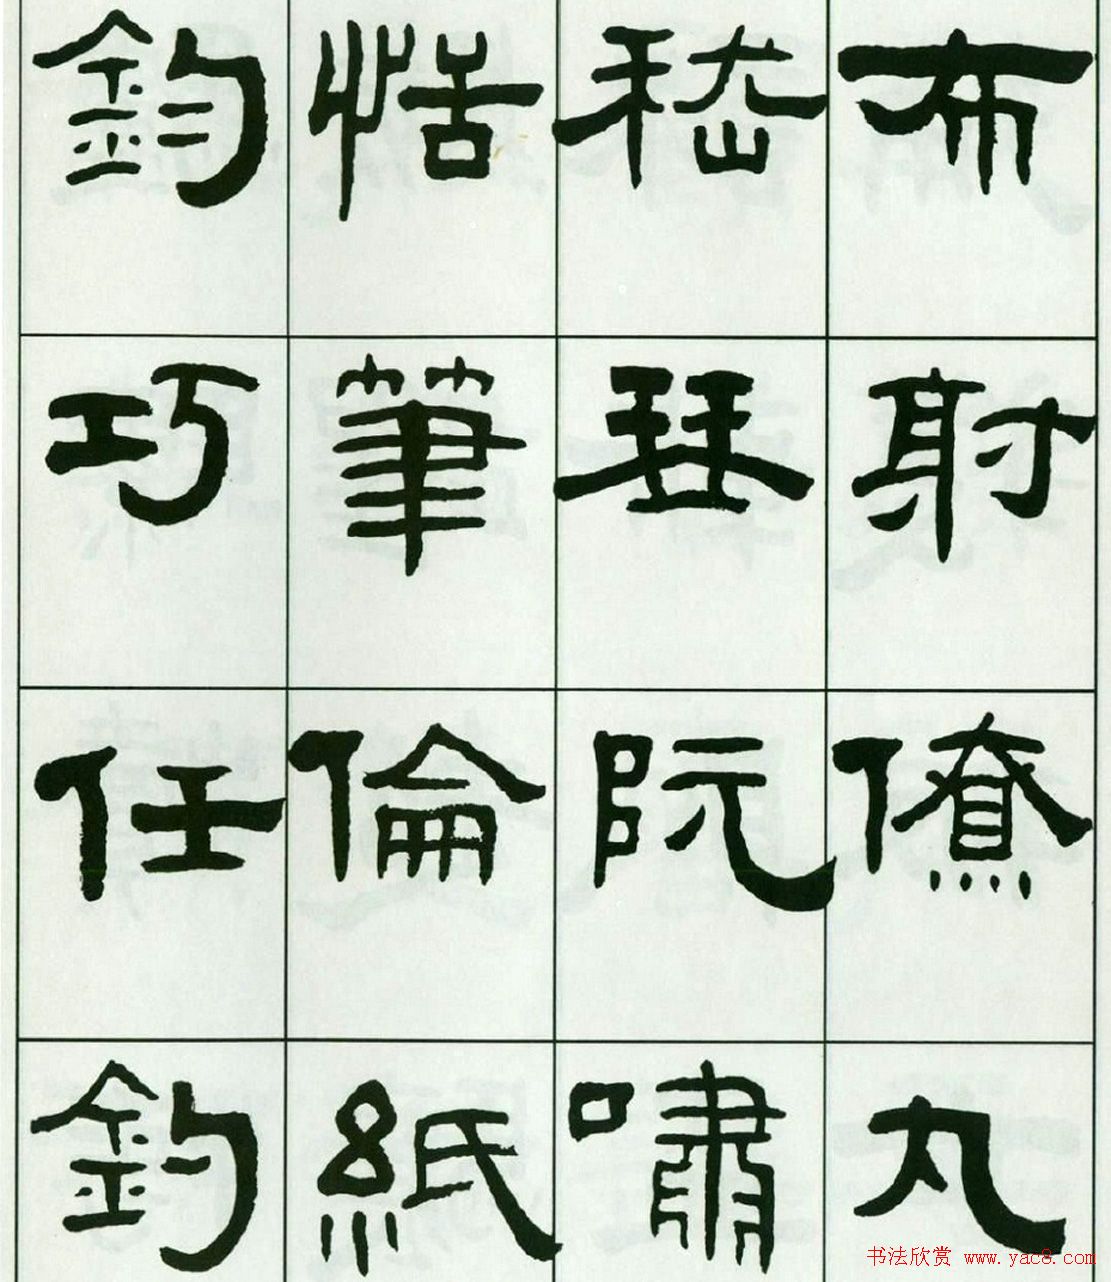 布射僚丸
嵇琴阮嘯
恬筆倫紙
鈞巧任釣
书法欣赏 www.yac8.com